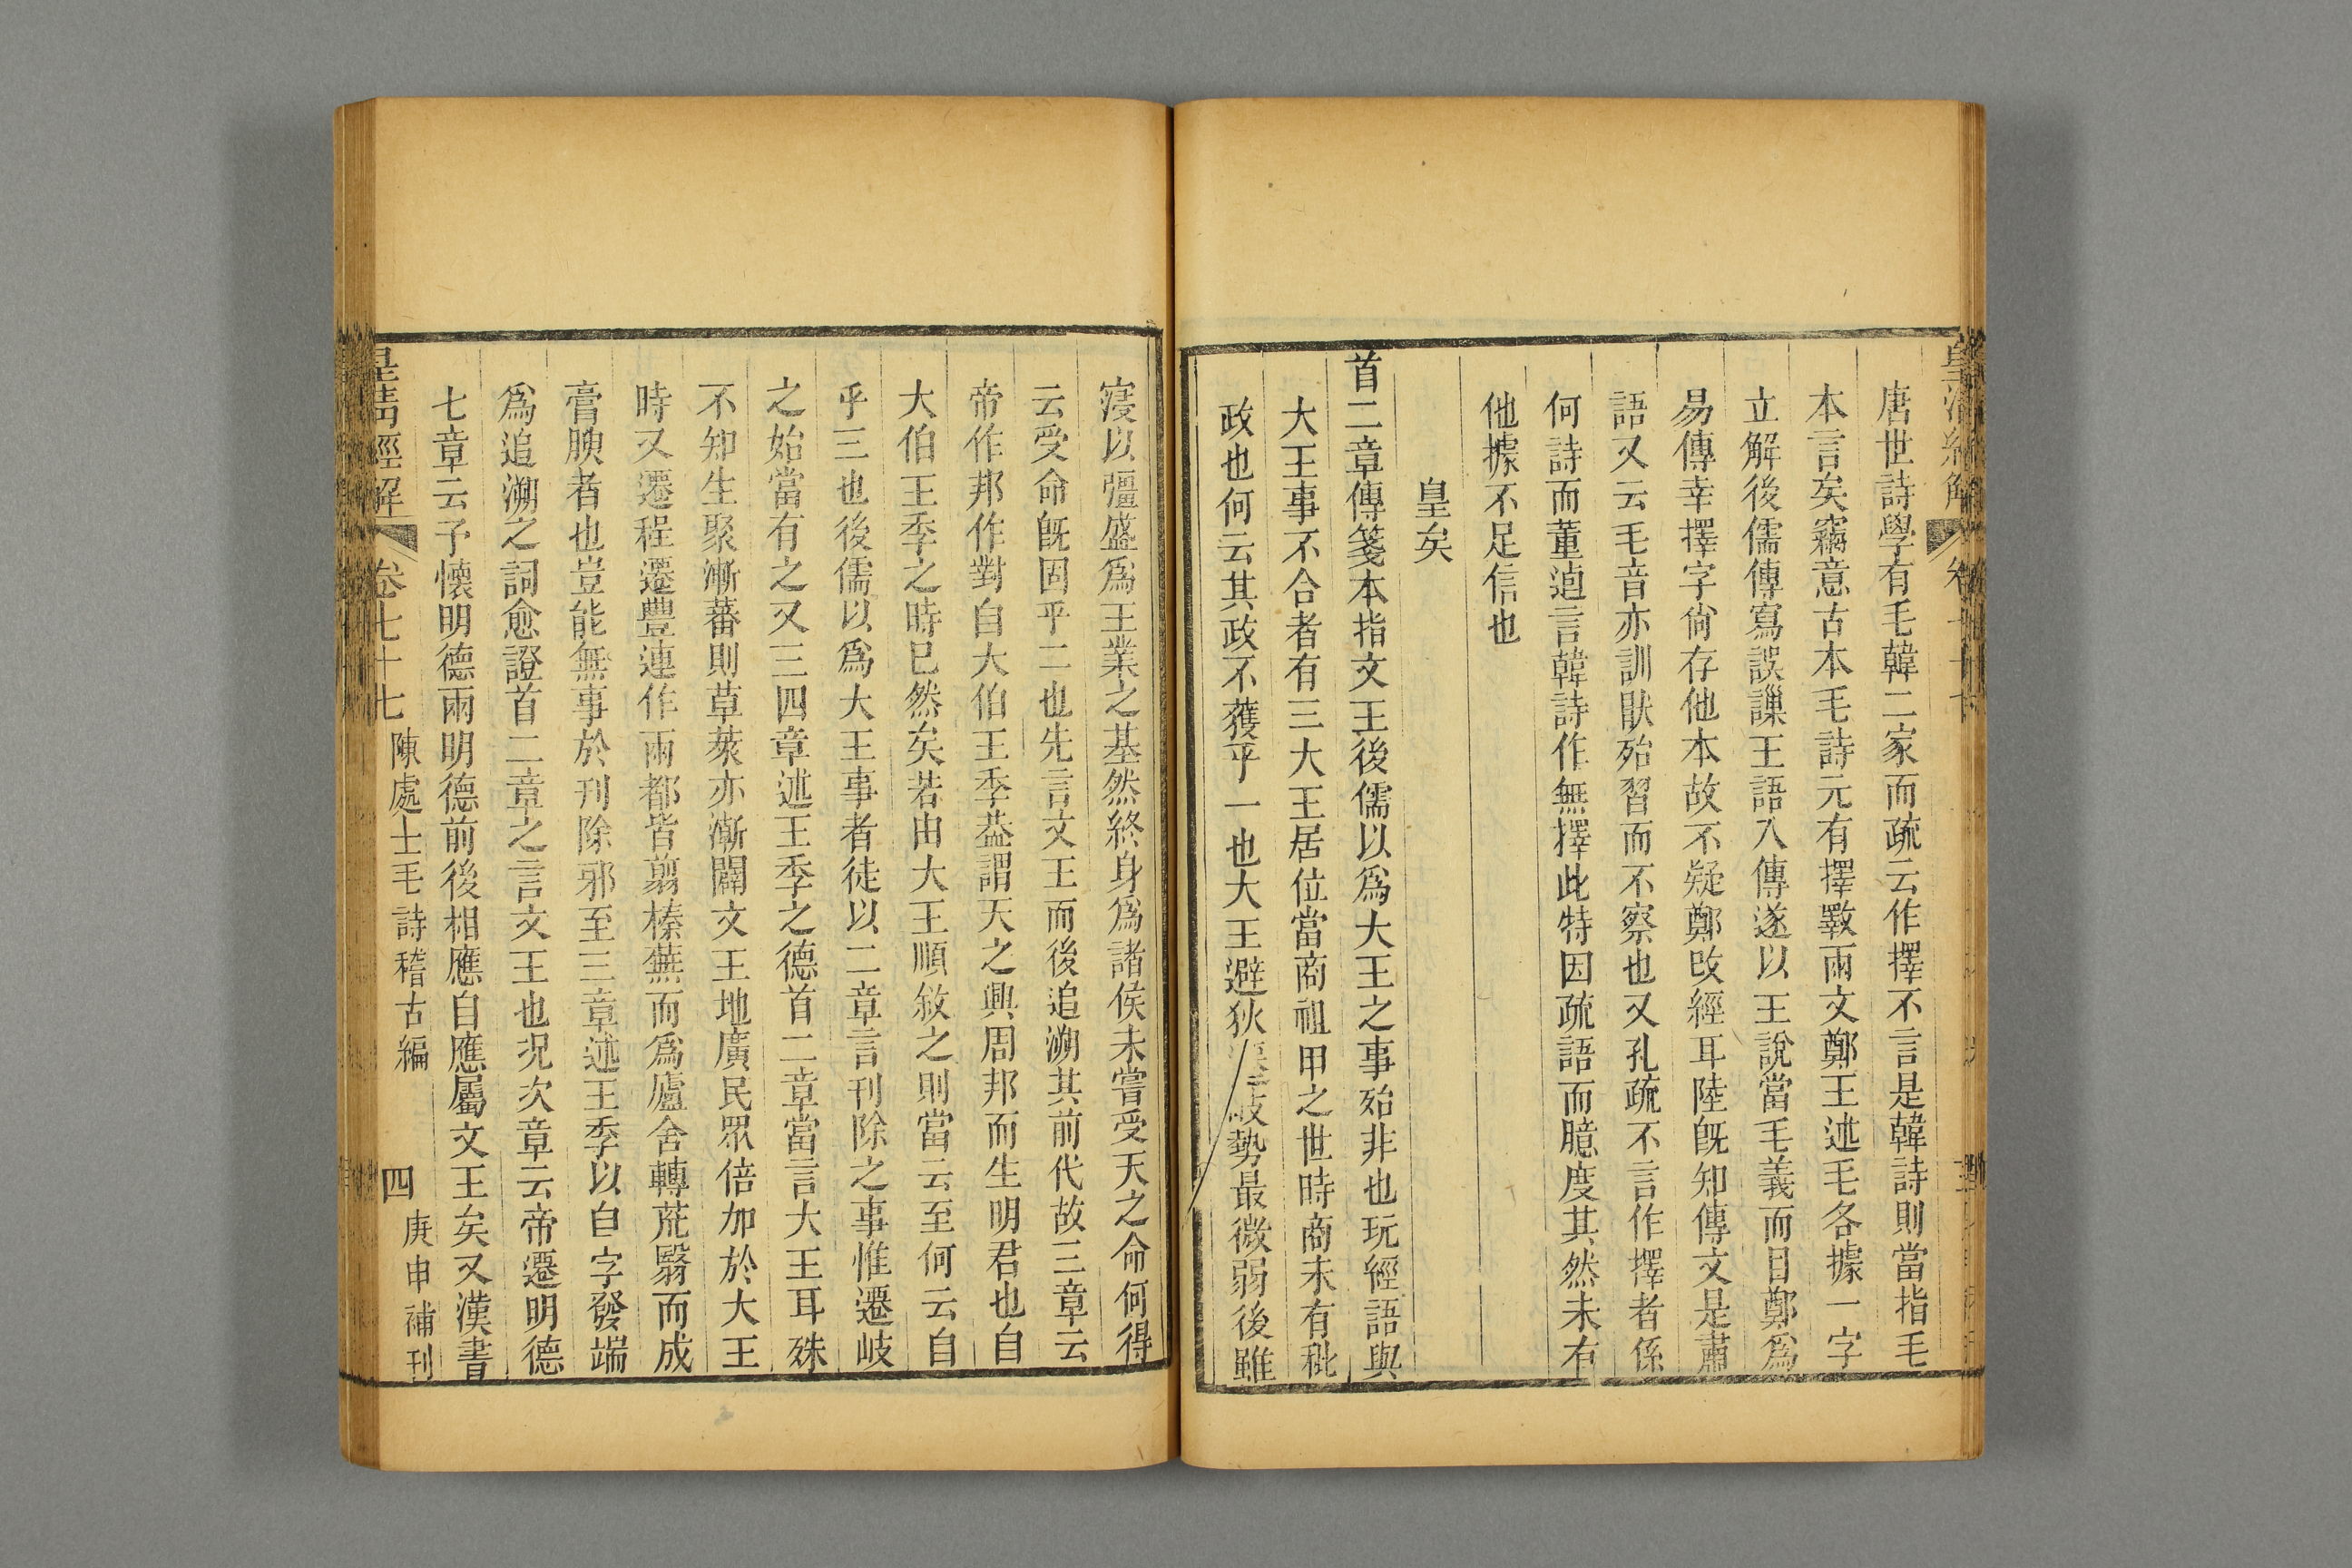 唐世詩學有毛韓二家而疏云作擇不言是韓詩則當指毛
本言矣竊意古本毛詩元有擇斁兩文鄭王述毛各據一字
立解後儒傳寫誤謰王語入傳遂以王說當毛義而目鄭為
易傳幸擇字尙存他本故不疑鄭改經耳陸旣知傳文是肅
語又云毛音亦訓猒殆習而不察也又孔疏不言作擇者係
何詩而董逌言韓詩作無擇此特因疏語而臆度其然未有
他據不足信也
皇矣
首二章傳箋本指文王後儒以爲大王之事殆非也玩經語與
大王事不合者有三大王居位當商祖甲之世時商未有秕
政也何云其政不獲乎一也大王避狄岐勢最微弱後雖
寖以彊盛爲王業之基然終身爲諸侯未嘗受天之命何得
云受命旣固乎二也先言文王而後追溯其前代故三章云
帝作邦作對自大伯王季葢謂天之興周邦而生明君也自
大伯王季之時巳然矣若由大王順敘之則當云至何云自
乎三也後儒以爲大王事者徒以二章言刊除之事惟遷岐
之始當有之又三四章述王季之德首二章當言大王耳殊
不知生聚漸蕃則草萊亦漸闢文王地廣民眾倍加於大王
時又遷程遷豐連作兩都皆翦榛蕪而爲廬舍轉荒翳而成
膏腴者也豈能無事於刊除邪至三章述王季以自字發端
爲追溯之詞愈證首二章之言文王也況次章云帝遷明德
七章云予懷明德兩明德前後相應自應屬文王矣又漢書
皇淸經解 卷七十七 陳處士毛詩稽古編 四 庚申補刊